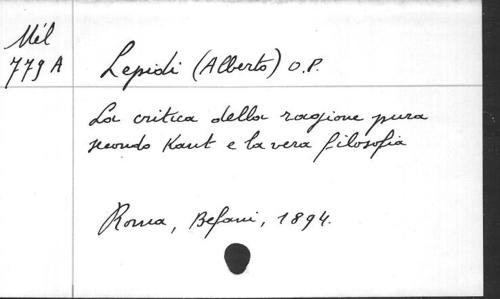 Mél
779 A
Lepidi (Alberto) O.P.
La critica della ragione pura
secondo Kant e la vera filosofia
Roma, Befani, 1894.